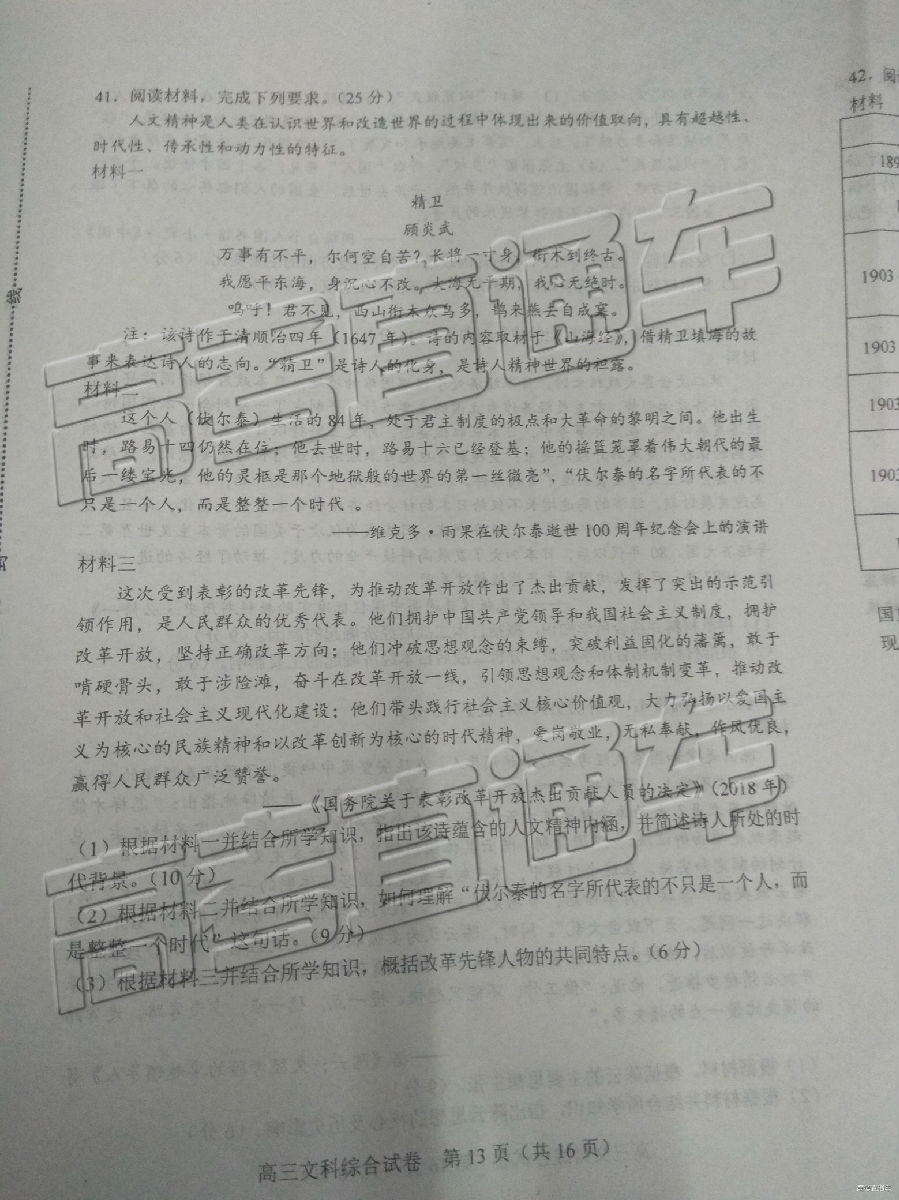 41. 阅读材料，完成下列要求。（25分）
人文精神是人类在认识世界和改造世界的过程中体现出来的价值取向，具有超越性、
时代性、传承性和动力性的特征。
材料一
精卫
顾炎武
万事有不平，尔何空自苦？长将一寸身，衔木到终古。
我愿平东海，身沉心不改。大海无平期，我心无绝时。
呜呼！君不见，西山衔木众鸟多，鹊来燕去自成窠。
注：该诗作于清顺治四年（1647年）。诗的内容取材于《山海经》，借精卫填海的故
事来表达诗人的志向。“精卫”是诗人的化身，是诗人精神世界的袒露。
材料二
这个人（伏尔泰）生活的84年，处于君主制度的极点和大革命的黎明之间。他出生
时，路易十四仍然在位；他去世时，路易十六已经登基；他的摇篮笼罩着伟大朝代的最
后一缕宝光，他的灵柩是那个地狱般的世界的第一丝微亮”，“伏尔泰的名字所代表的不
只是一个人，而是整整一个时代。
——维克多·雨果在伏尔泰逝世100周年纪念会上的演讲
材料三
这次受到表彰的改革先锋，为推动改革开放作出了杰出贡献，发挥了突出的示范引
领作用，是人民群众的优秀代表。他们拥护中国共产党领导和我国社会主义制度，拥护
改革开放，坚持正确改革方向；他们冲破思想观念的束缚，突破利益固化的藩篱，敢于
啃硬骨头，敢于涉险滩，奋斗在改革开放一线，引领思想观念和体制机制变革，推动改
革开放和社会主义现代化建设；他们带头践行社会主义核心价值观，大力弘扬以爱国主
义为核心的民族精神和以改革创新为核心的时代精神，爱岗敬业，无私奉献，作风优良，
赢得人民群众广泛赞誉。
——《国务院关于表彰改革开放杰出贡献人员的决定》（2018年）
（1）根据材料一并结合所学知识，指出该诗蕴含的人文精神内涵，并简述诗人所处的时
代背景。（10分）
（2）根据材料二并结合所学知识，如何理解“伏尔泰的名字所代表的不只是一个人，而
是整整一个时代”这句话。（9分）
（3）根据材料三并结合所学知识，概括改革先锋人物的共同特点。（6分）
高三文科综合试卷 第13页（共16页）
42. 阅
材料
189
1903
1903
1903
1903
国
现
高考直通车
高考直通车